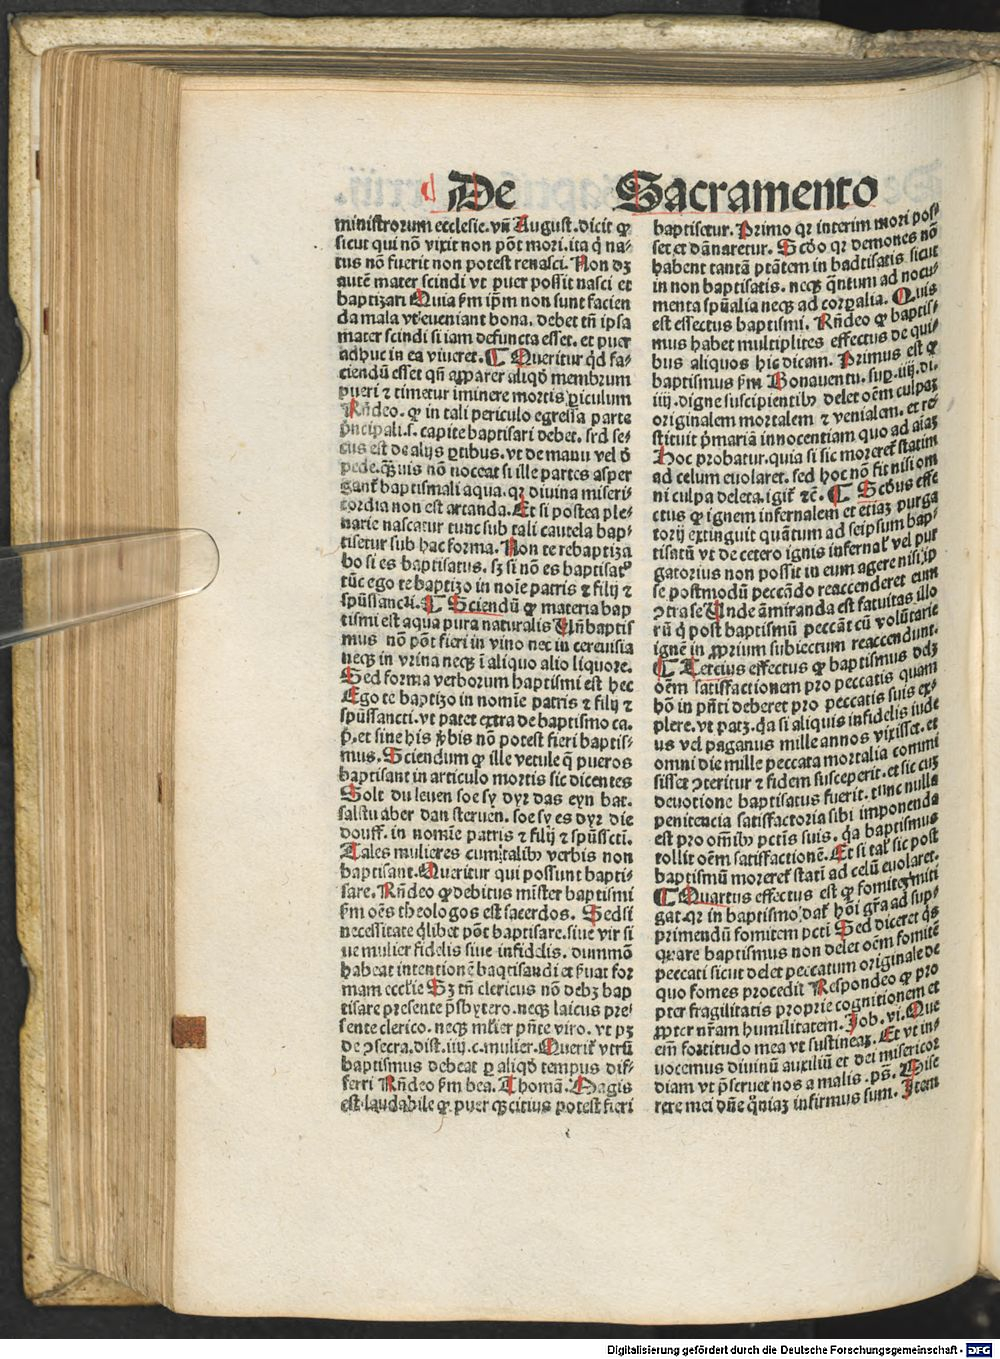 De Sacramento
ministrorum ecclesie. vñ August. dicit ꝙ
sicut qui nõ vixit non põt mori. ita q̇ na⸗
tus nõ fuerit non potest renasci. Non dꝫ
autẽ mater scindi vt puer possit nasci et
baptizari Quia ẜm ip̃m non sunt facien
da mala vt eueniant bona. debet tñ ipsa
mater scindi si iam defuncta esset. et puer
adhuc in ea viueret. ¶ Queritur qͥd fa⸗
ciendũ esset qñ apparer aliqḋ membrum
pueri ⁊ timetur iminere mortis ꝑiculum
Rñdeo. ꝙ in tali periculo egressa parte
pͥncipali .s. capite baptisari debet. srd se⸗
cus est de alijs ꝑtibus. vt de manu vel ḋ
pede. qͣꝫuis nõ noceat si ille partes asper
gantˀ baptismali aqua. qꝛ diuina miseri⸗
cordia non est artanda. Et si postea ple⸗
narie nascatur tunc sub tali cautela bap⸗
tisetur sub hac forma. Non te rebaptiza
bo si es baptisatus. sꝫ si nõ es baptisatꝰ
tũc ego te baptizo in noĩe patris ⁊ filij ⁊
spũssancti. ¶ Sciendũ ꝙ materia bap
tismi est aqua pura naturalis Uñ baptis
mus nõ põt fieri in vino nec in ceruisia
necꝫ in vrina necꝫ ĩ aliquo alio liquore.
Sed forma verborum baptismi est hec
Ego te baptizo in nomĩe patris ⁊ filij ⁊
spũssancti. vt patet extra de baptismo ca.
p̊. et sine his v̾bis nõ potest fieri baptis⸗
mus. Sciendum ꝙ ille vetule q̃ pueros
baptisant in articulo mortis sic dicentes
Solt du leuen soe sy dyr das eyn bat.
salstu aber dan steruen. soe sy es dyr die
douff. in nomĩe patris ⁊ filij ⁊ spũsscti.
Tales mulieres cum talibꝰ verbis non
baptisant. Queritur qui possunt bapti⸗
sare. Rñdeo ꝙ debitus mĩster baptismi
ẜm oẽs theologos est sacerdos. Sed si
necessitate qͥlibet põt baptisare. siue vir si
ue mulier fidelis siue infidelis. dummõ
habeat intentionẽ baqtisandi et ẜuat for
mam ecclˀie Sꝫ tñ clericus nõ debꝫ bap
tisare presente p̃sbytero. necꝫ laicus pre⸗
sente clerico. necꝫ mlˀier p̃nte viro. vt pꝫ
de ꝯsecra. dist. iiij .c. mulier. Queritˀ vtrũ
baptismus debeat ꝑ aliqḋ tempus dif⸗
ferri Rñdeo ẜm bea. Thomã. Magis
est laudabile ꝙ puer qͣꝫcitius potest fieri
baptisetur. Primo qꝛ interim mori pos⸗
set et dãnaretur. Scḋo qꝛ demones nõ
habent tantã ptãtem in badtisatis sicut
in non baptisatis. necꝫ qͣntum ad nocu⸗
menta spũalia necꝫ ad corꝑalia. Quis
est effectus baptismi. Rñdeo ꝙ baptis⸗
mus habet multiplites effectus de qui⸗
bus aliquos hic dicam. Primus est ꝙ
baptismus ẜm Bonauentu. suꝑ .iiij. di.
iiij. digne suscipientibꝰ delet oẽm culpaꝫ
originalem mortalem ⁊ venialem. et re⸗
stituit pͥmariã innocentiam quo ad aĩaꝫ
Hoc probatur. quia si sic moreretˀ statim
ad celum euolaret. sed hoc nõ fit nisi om
ni culpa deleta. igitˀ ⁊cẽ. ¶ Scḋus effe
ctus ꝙ ignem infernalem et etiaꝫ purga
torij extinguit quãtum ad seipsum bap⸗
tisatũ vt de cetero ignis infernalˀ vel pur
gatorius non possit in eum agere nisi ip
se postmodũ peccãdo reaccenderet eum
ꝯtra se Unde ãmiranda est fatuitas illo
rũ q̇ post baptismũ peccãt cũ volũtarie
ignẽ in ꝓprium subiectum reaccendunt.
¶ Tercius effectus ꝙ baptismus delꝫ
oẽm satisfactionem pro peccatis quam
hõ in pñti deberet pro peccatis suis ex⸗
plere. vt patꝫ. qͥa si aliquis infidelis iude
us vel paganus mille annos vixisset. et
omni die mille peccata mortalia commi
sisset ꝯteritur ⁊ fidem susceperit. et sic cuꝫ
deuotione baptisatus fuerit. tunc nulla
penitencia satisfactoria sibi imponenda
est pro om̃ibꝰ pctĩs suis. qͥa baptismus
tollit oẽm satisfactionẽ. Et si talˀ sic post
baptismũ moreretˀ stati ad celũ euolaret.
¶ Quartus effectus est ꝙ fomitẽ miti
gat. qꝛ in baptismo datˀ hõi grã ad sup⸗
primendũ fomitem pcti Sed diceret qͥs
quare baptismus non delet oẽm fomitẽ
peccati sicut delet peccatum originale de
quo fomes procedit Respondeo ꝙ pro
pter fragilitatis proprie cognitionem et
ꝓpter nr̃am humilitatem. Job. vi. Que
em̃ fortitudo mea vt sustineaꝫ. Et vt in⸗
uocemus diuinũ auxiliũ et dei misericor
diam vt p̃seruet nos a malis. ps̃. Mise
rere mei dñe qͦniaꝫ infirmus sum. Item
Digitalisierung gefördert durch die Deutsche Forschungsgemeinschaft - DFG